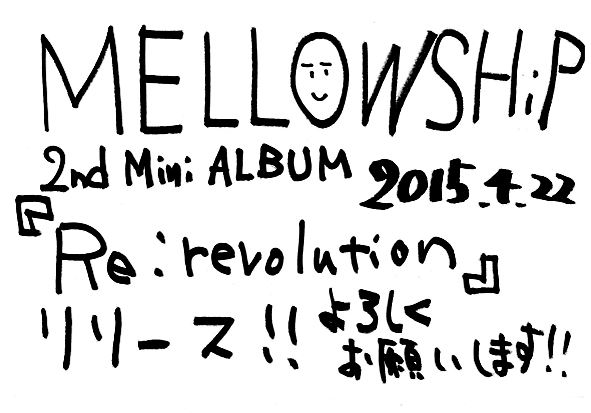 MELLOWSHiP
2nd Mini ALBUM 2015.4.22
『Re:revolution』
リリース!! よろしく
お願いします!!